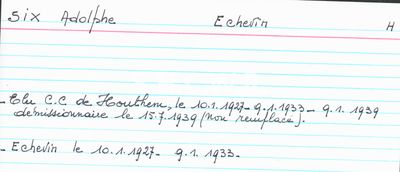 Six Adolphe Echevin H
- Elu C.C. de Houthem, le 10.1.1927 - 9.1.1933 - 9.1.1939
démissionnaire le 15.7.1939 (non remplacé).
- Echevin le 10.1.1927 - 9.1.1933 -